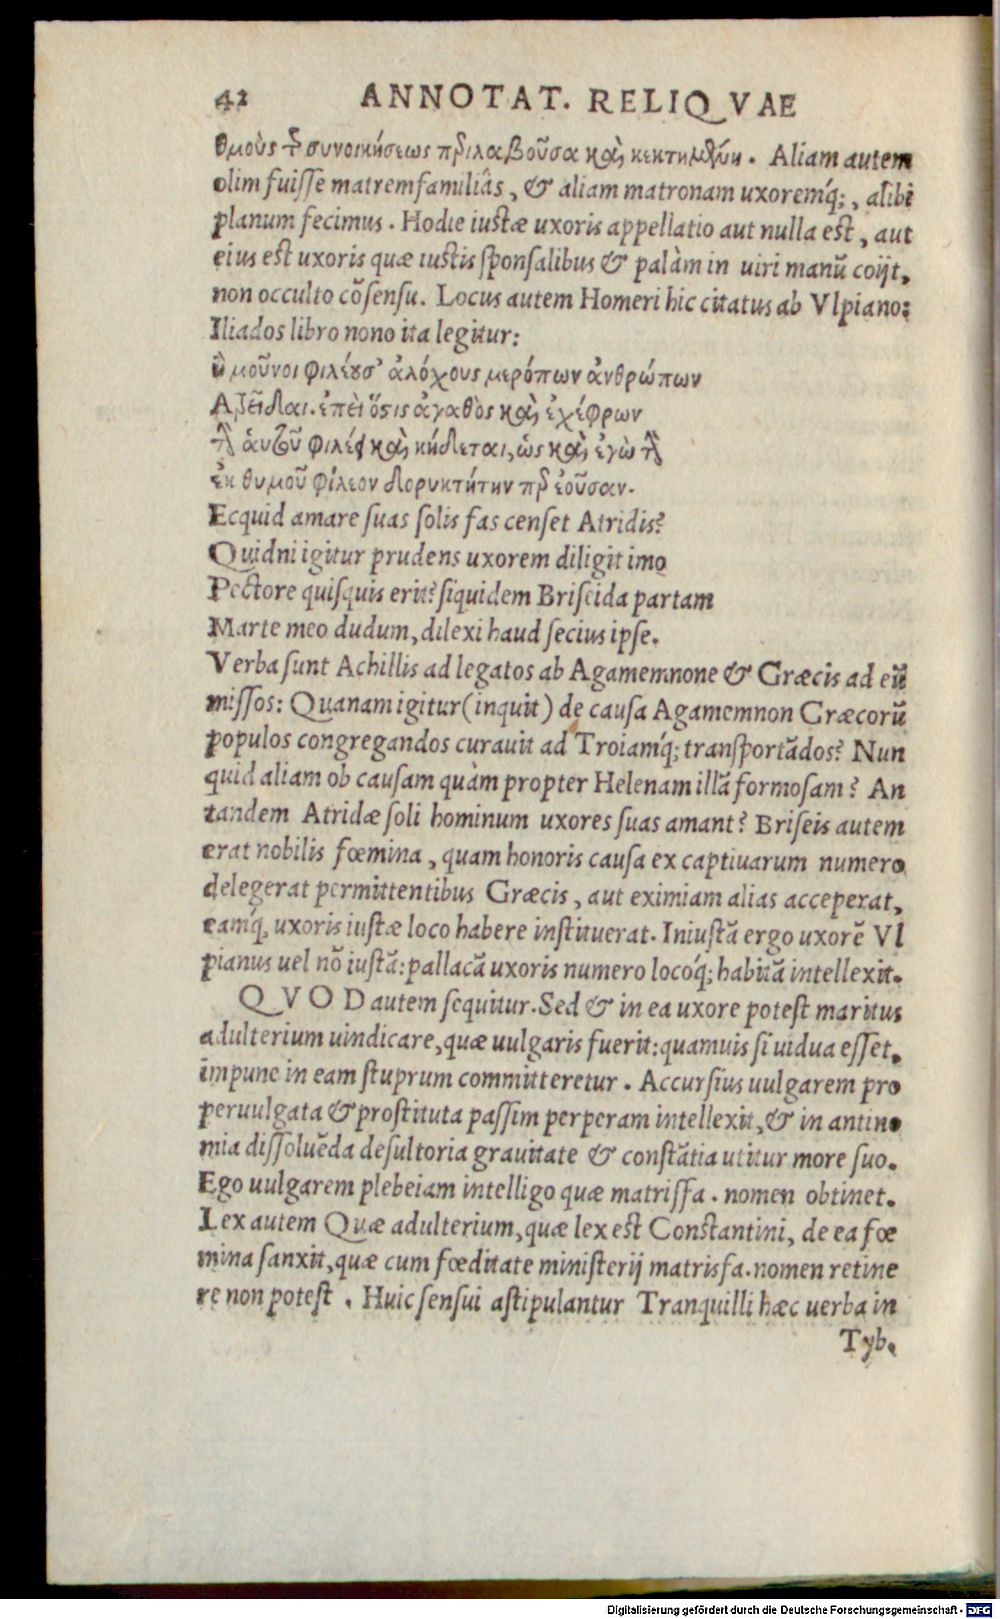 42 ANNOTAT. RELIQVAE
θμοὺς τῆς συνοικήσεως περιλαβοῦσα καὶ κεκτημένη. Aliam autem
olim fuiſſe matremfamiliâs, & aliam matronam uxoremq́;, alibi
planum fecimus. Hodie iustæ uxoris appellatio aut nulla est, aut
eius est uxoris quæ iustis ſponſalibus & palàm in uiri manū coijt,
non occulto cōſenſu. Locus autem Homeri hic citatus ab Vlpiano:
Iliados libro nono ita legitur:
ἦ μοῦνοι φιλέουσ' ἀλόχους μερόπων ἀνθρώπων
Ἀτρεῖδαι. ἐπεὶ ὅστις ἀγαθὸς καὶ ἐχέφρων
τὴν ἁυτοῦ φιλέει καὶ κήδεται, ὡς καὶ ἐγὼ τὴν
ἐκ θυμοῦ φίλεον δορυκτήτην περ ἐοῦσαν.
Ecquid amare ſuas ſolis fas cenſet Atridis?
Quidni igitur prudens uxorem diligit imo
Pectore quiſquis erit? ſiquidem Briſeida partam
Marte meo dudum, dilexi haud ſecius ipſe.
Verba ſunt Achillis ad legatos ab Agamemnone & Græcis ad eū
miſſos: Quanam igitur (inquit) de cauſa Agamemnon Græcorū
populos congregandos curauit ad Troiamq́; tranſportādos? Nun
quid aliam ob cauſam quàm propter Helenam illā formoſam? An
tandem Atridæ ſoli hominum uxores ſuas amant? Briſeis autem
erat nobilis fœmina, quam honoris cauſa ex captiuarum numero
delegerat permittentibus Græcis, aut eximiam alias acceperat,
eamq́, uxoris iustæ loco habere instituerat. Iniustā ergo uxorē Vl
pianus uel nō iustā: pallacā uxoris numero locoq́; habitā intellexit.
QVOD autem ſequitur. Sed & in ea uxore potest maritus
adulterium uindicare, quæ uulgaris fuerit: quamuis ſi uidua eſſet,
impune in eam ſtuprum committeretur. Accurſius uulgarem pro
peruulgata & prostituta paſſim perperam intellexit, & in antino
mia diſſoluēda deſultoria grauitate & constātia utitur more ſuo.
Ego uulgarem plebeiam intelligo quæ matriſſa. nomen obtinet.
Lex autem Quæ adulterium, quæ lex est Constantini, de ea fœ
mina ſanxit, quæ cum fœditate miniſterij matrisfa. nomen retine
re non potest. Huic ſenſui aſtipulantur Tranquilli hæc uerba in
Tyb.
Digitalisierung gefördert durch die Deutsche Forschungsgemeinschaft - DFG